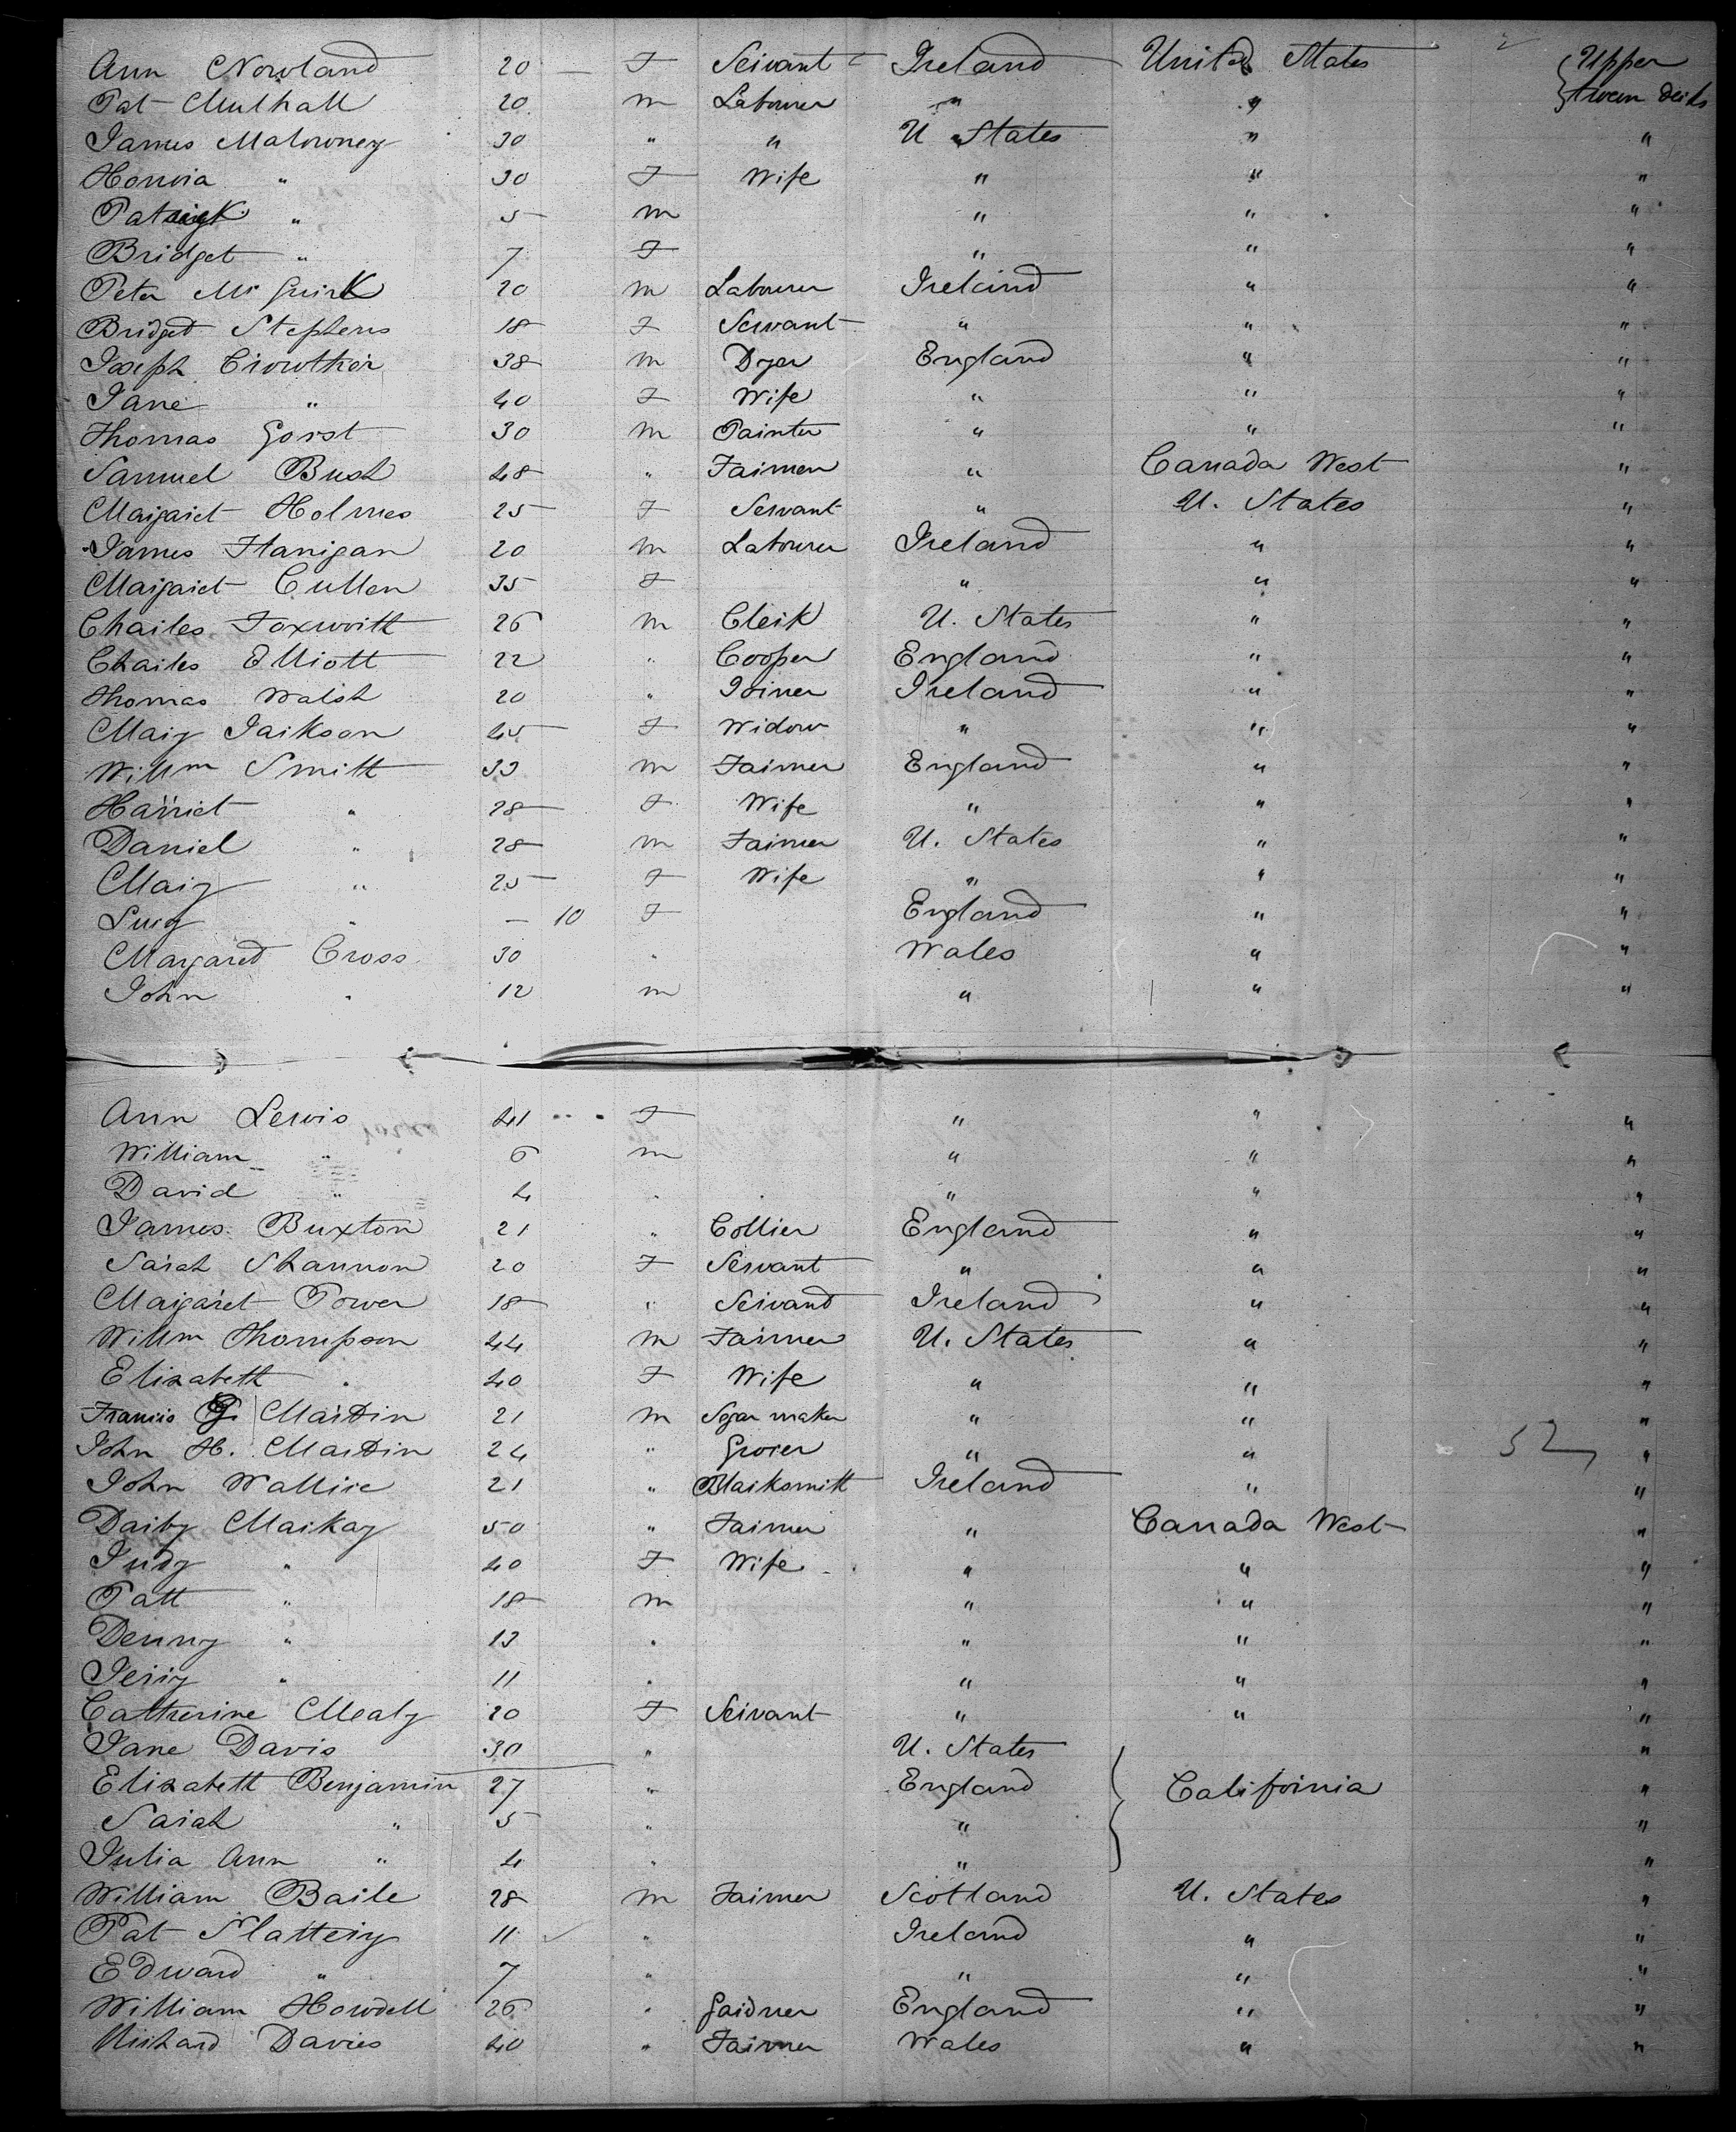 Ann Nowland 20 F Servant Ireland United States { Upper
Pat Mulhall 20 m Labourer " " tween decks
James Malowney 30 " " U States " "
Honoria " 30 F Wife " " "
Patrick " 5 m " " "
Bridget " 7 F " " "
Peter McGuirk 20 m Labourer Ireland " "
Bridget Stephens 18 F Servant " " "
Joseph Crowther 38 m Dyer England " "
Jane " 40 F Wife " " "
Thomas Gorst 30 m Painter " " "
Samuel Bush 48 " Farmer " Canada West "
Margaret Holmes 25 F Servant " U. States "
James Flanigan 20 m Labourer Ireland " "
Margaret Cullen 35 F " " "
Charles Foxwith 26 m Clerk U. States " "
Charles Elliott 22 " Cooper England " "
Thomas Walsh 20 " Joiner Ireland " "
Mary Jackson 45 F Widow " " "
Willm Smith 33 m Farmer England " "
Harriet " 28 F Wife " " "
Daniel " 28 m Farmer U. States " "
Mary " 25 F Wife " " "
Lucy " – 10 F England " "
Margaret Cross 30 " Wales " "
John " 12 m " " "
Ann Lewis 41 F " " "
William " 6 m " " "
David " 4 " " " "
James Buxton 21 " Collier England " "
Sarah Shannon 20 F Servant " " "
Margaret Power 18 " Servant Ireland " "
Willm Thompson 44 m Farmer U. States " "
Elizabeth " 40 F Wife " " "
Francis G. Martin 21 m Segar maker " " "
John H. Martin 24 " Grocer " " 52 "
John Wallice 21 " Blacksmith Ireland " "
Darby Mackay 50 " Farmer " Canada West "
Judy " 40 F Wife " " "
Patt " 18 m " " "
Denny " 13 " " " "
Jerry " 11 " " " "
Catherine Mealy 20 F Servant " " "
Jane Davis 30 " U. States "
Elizabeth Benjamin 27 " England } California "
Sarah " 5 " " "
Julia Ann " 4 " " "
William Baile 28 m Farmer Scotland U. States "
Pat Slattery 11 " Ireland " "
Edward " 7 " " " "
William Howdell 26 " Gardner England " "
Richard Davies 40 " Farmer Wales " "